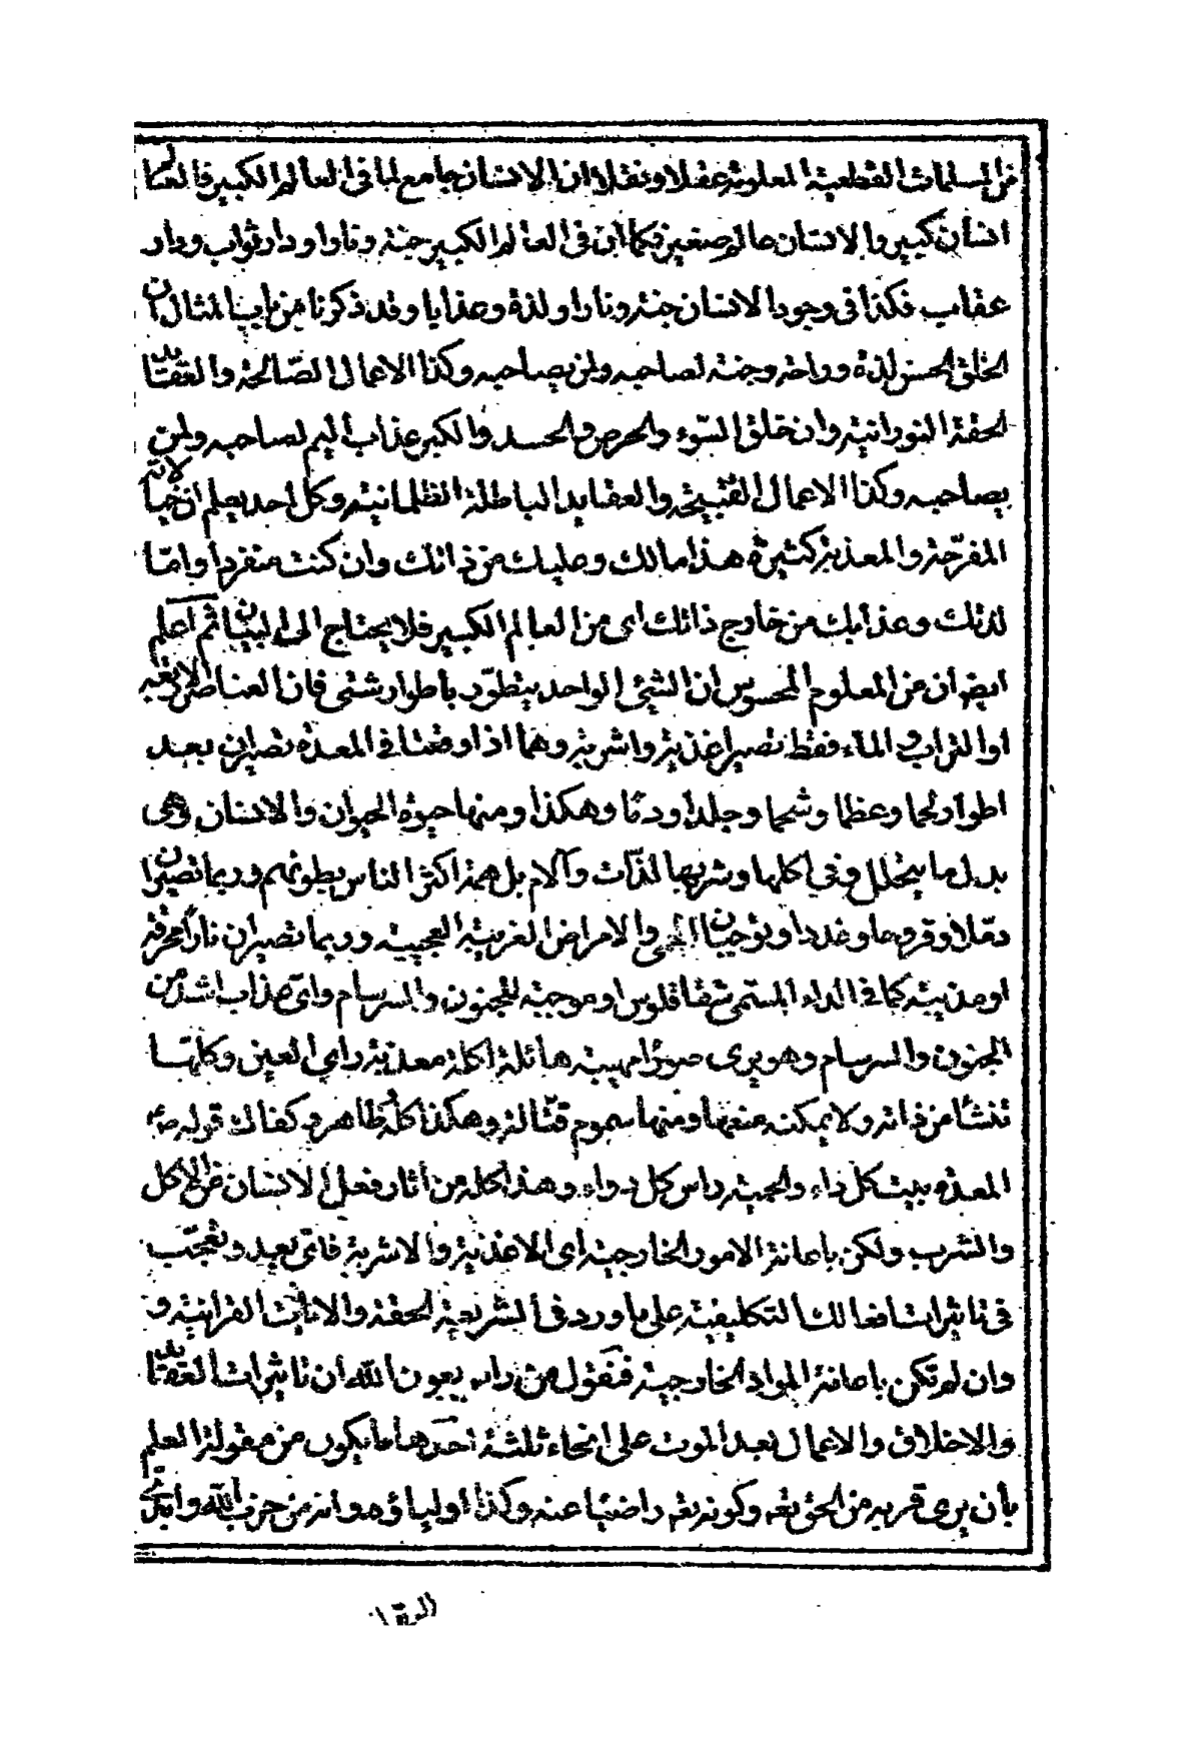 من المسلمات القطعية المعلومة عقلا ونقلا ان الانسان جامع لما فى العالم الكبير فالعالم
انسان كبير والانسان عالم صغير فكما ان فى العالم الكبير جنة ونارا ودار ثواب ودار
عقاب فكذا فى وجود الانسان جنة ونارا ولذة وعذابا وقد ذكرنا من باب المثال ان
الخلق الحسن لذة وراحة وجنة لصاحبه ولمن يصاحبه وكذا الاعمال الصّالحة والعقايد
الحقة النورانية وان خلق السّوء والحرص والحسد والكبر عذاب أليم لصاحبه ولمن
يصاحبه وكذا الاعمال القبيحة والعقايد الباطلة الظلمانية وكل احد يعلم ان خيالاته
المفرّحة والمعذبة كثيرة هذا مالك وعليك من ذاتك وان كنت منفردا وامّا
لذتك وعذابك من خارج ذاتك اى من العالم الكبير فلا يحتاج الى البيان ثم اعلم
ايضا ان من المعلوم المحسوس ان الشئ الواحد يتطوّر باطوار شتى فان العناصر الاربعة
او التراب والماء فقط تصير اغذية واشربة وهما اذا وقعتا فى المعدة تصيران بعد
اطوار لحما وعظما وشحما وجلدا ودمّا وهكذا ومنها حيوة الحيوان والانسان وهى
بدل ما يتحلل وفى اكلها وشربها لذّات وآلام بل همّ اكثر الناس بطونهم وربما تصيران
دمّلا وقروحا وغددا وتوجبان الحمى والامراض الغريبة العجيبة وربما تصيران نارا محرقة
او مذيبة كما فى الداء المسمّى شقاقلوس او موجبة للجنون والسرسام واىّ عذاب اشدّ من
الجنون والسرسام وهو يرى صورا مهيبة هائلة اكلة معذبة راى العين وكلّها
تنشأ من ذاته ولا يمكنه منعها ومنها سموم قتّالة وهكذا كلّه ظاهر وكفاك قوله ص
المعدة بيت كل داء والحمية راس كل دواء وهذا كله من آثار فعل الانسان من الاكل
والشرب ولكن باعانة الامور الخارجية اى الاغذية والاشربة فاىّ بعيد وتعجّب
فى تاثيرات افعالك التكليفية على ما ورد فى الشريعة الحقة والايات القرانية و
وان لم تكن باعانة المواد الخارجية فنقول من راس بعون الله ان تاثيرات العقايد
والاخلاق والاعمال بعد الموت على انحاء ثلثة احدها ما يكون من مقولة العلم
بأن يرى قربه من الحق تعه وكونه تعه راضيا عنه وكذا اولياؤه وانه من حزب الله وانّ